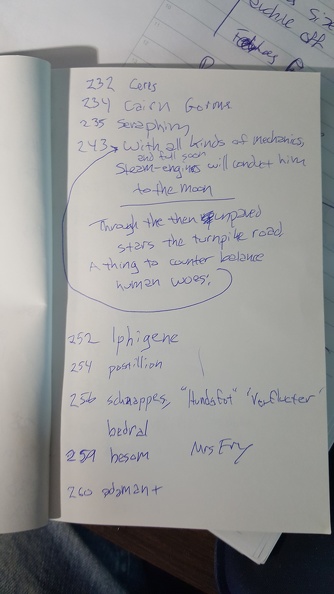 size
off
232 Ceres
234 Cairn Gorms
235 Seraphim
243 With all kinds of mechanics,
and full soon
Steam-engines will conduct him
to the moon
Through the then unpaved
stars the turnpike road,
A thing to counterbalance
human woes;
252 Iphigene
254 postillion
256 schnappes, "Hundsfot" 'Verflucter'
bedral
259 besom Mrs Fry
260 adamant